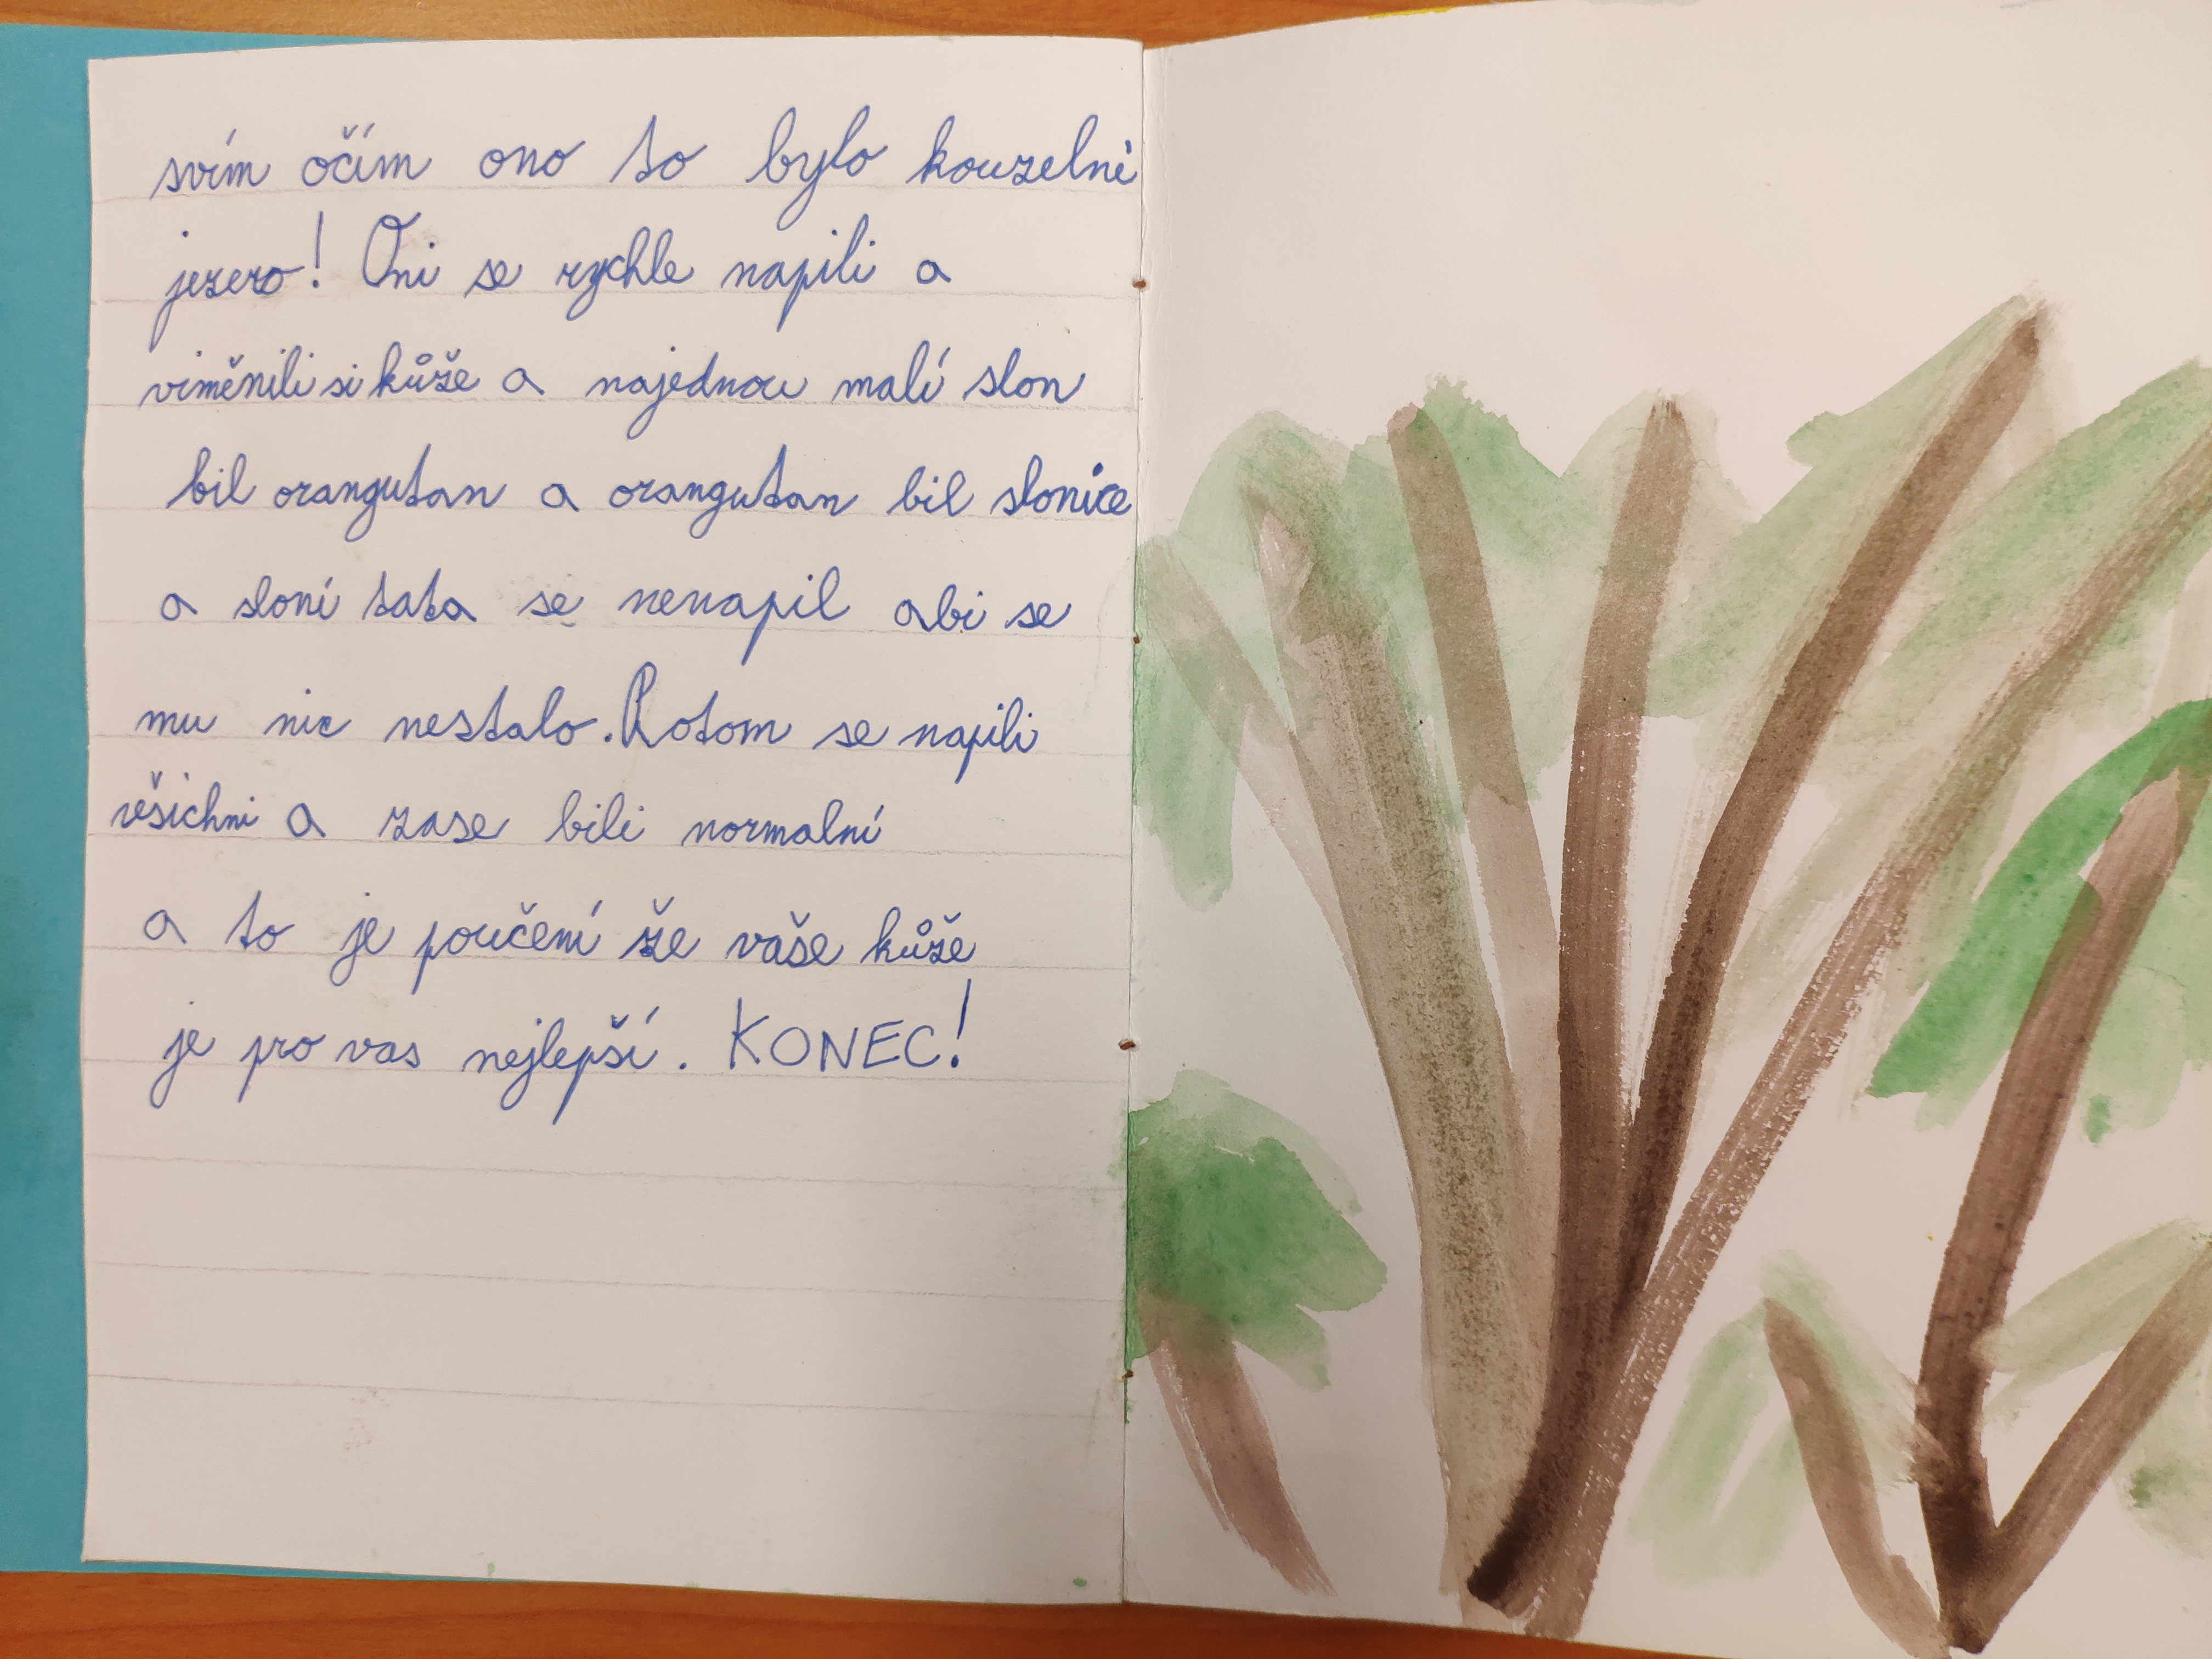 svím očím ono to bylo kouzelné
jezero! Oni se rychle napili a
viměnili si kůže a najednou malí slon
bil orangutan a orangutan bil slonice
a sloní tata se nenapil abi se
mu nic nestalo. Potom se napili
věšichni a zase bili normalní
a to je poučení že vaše kůže
je pro vas nejlepší. KONEC!